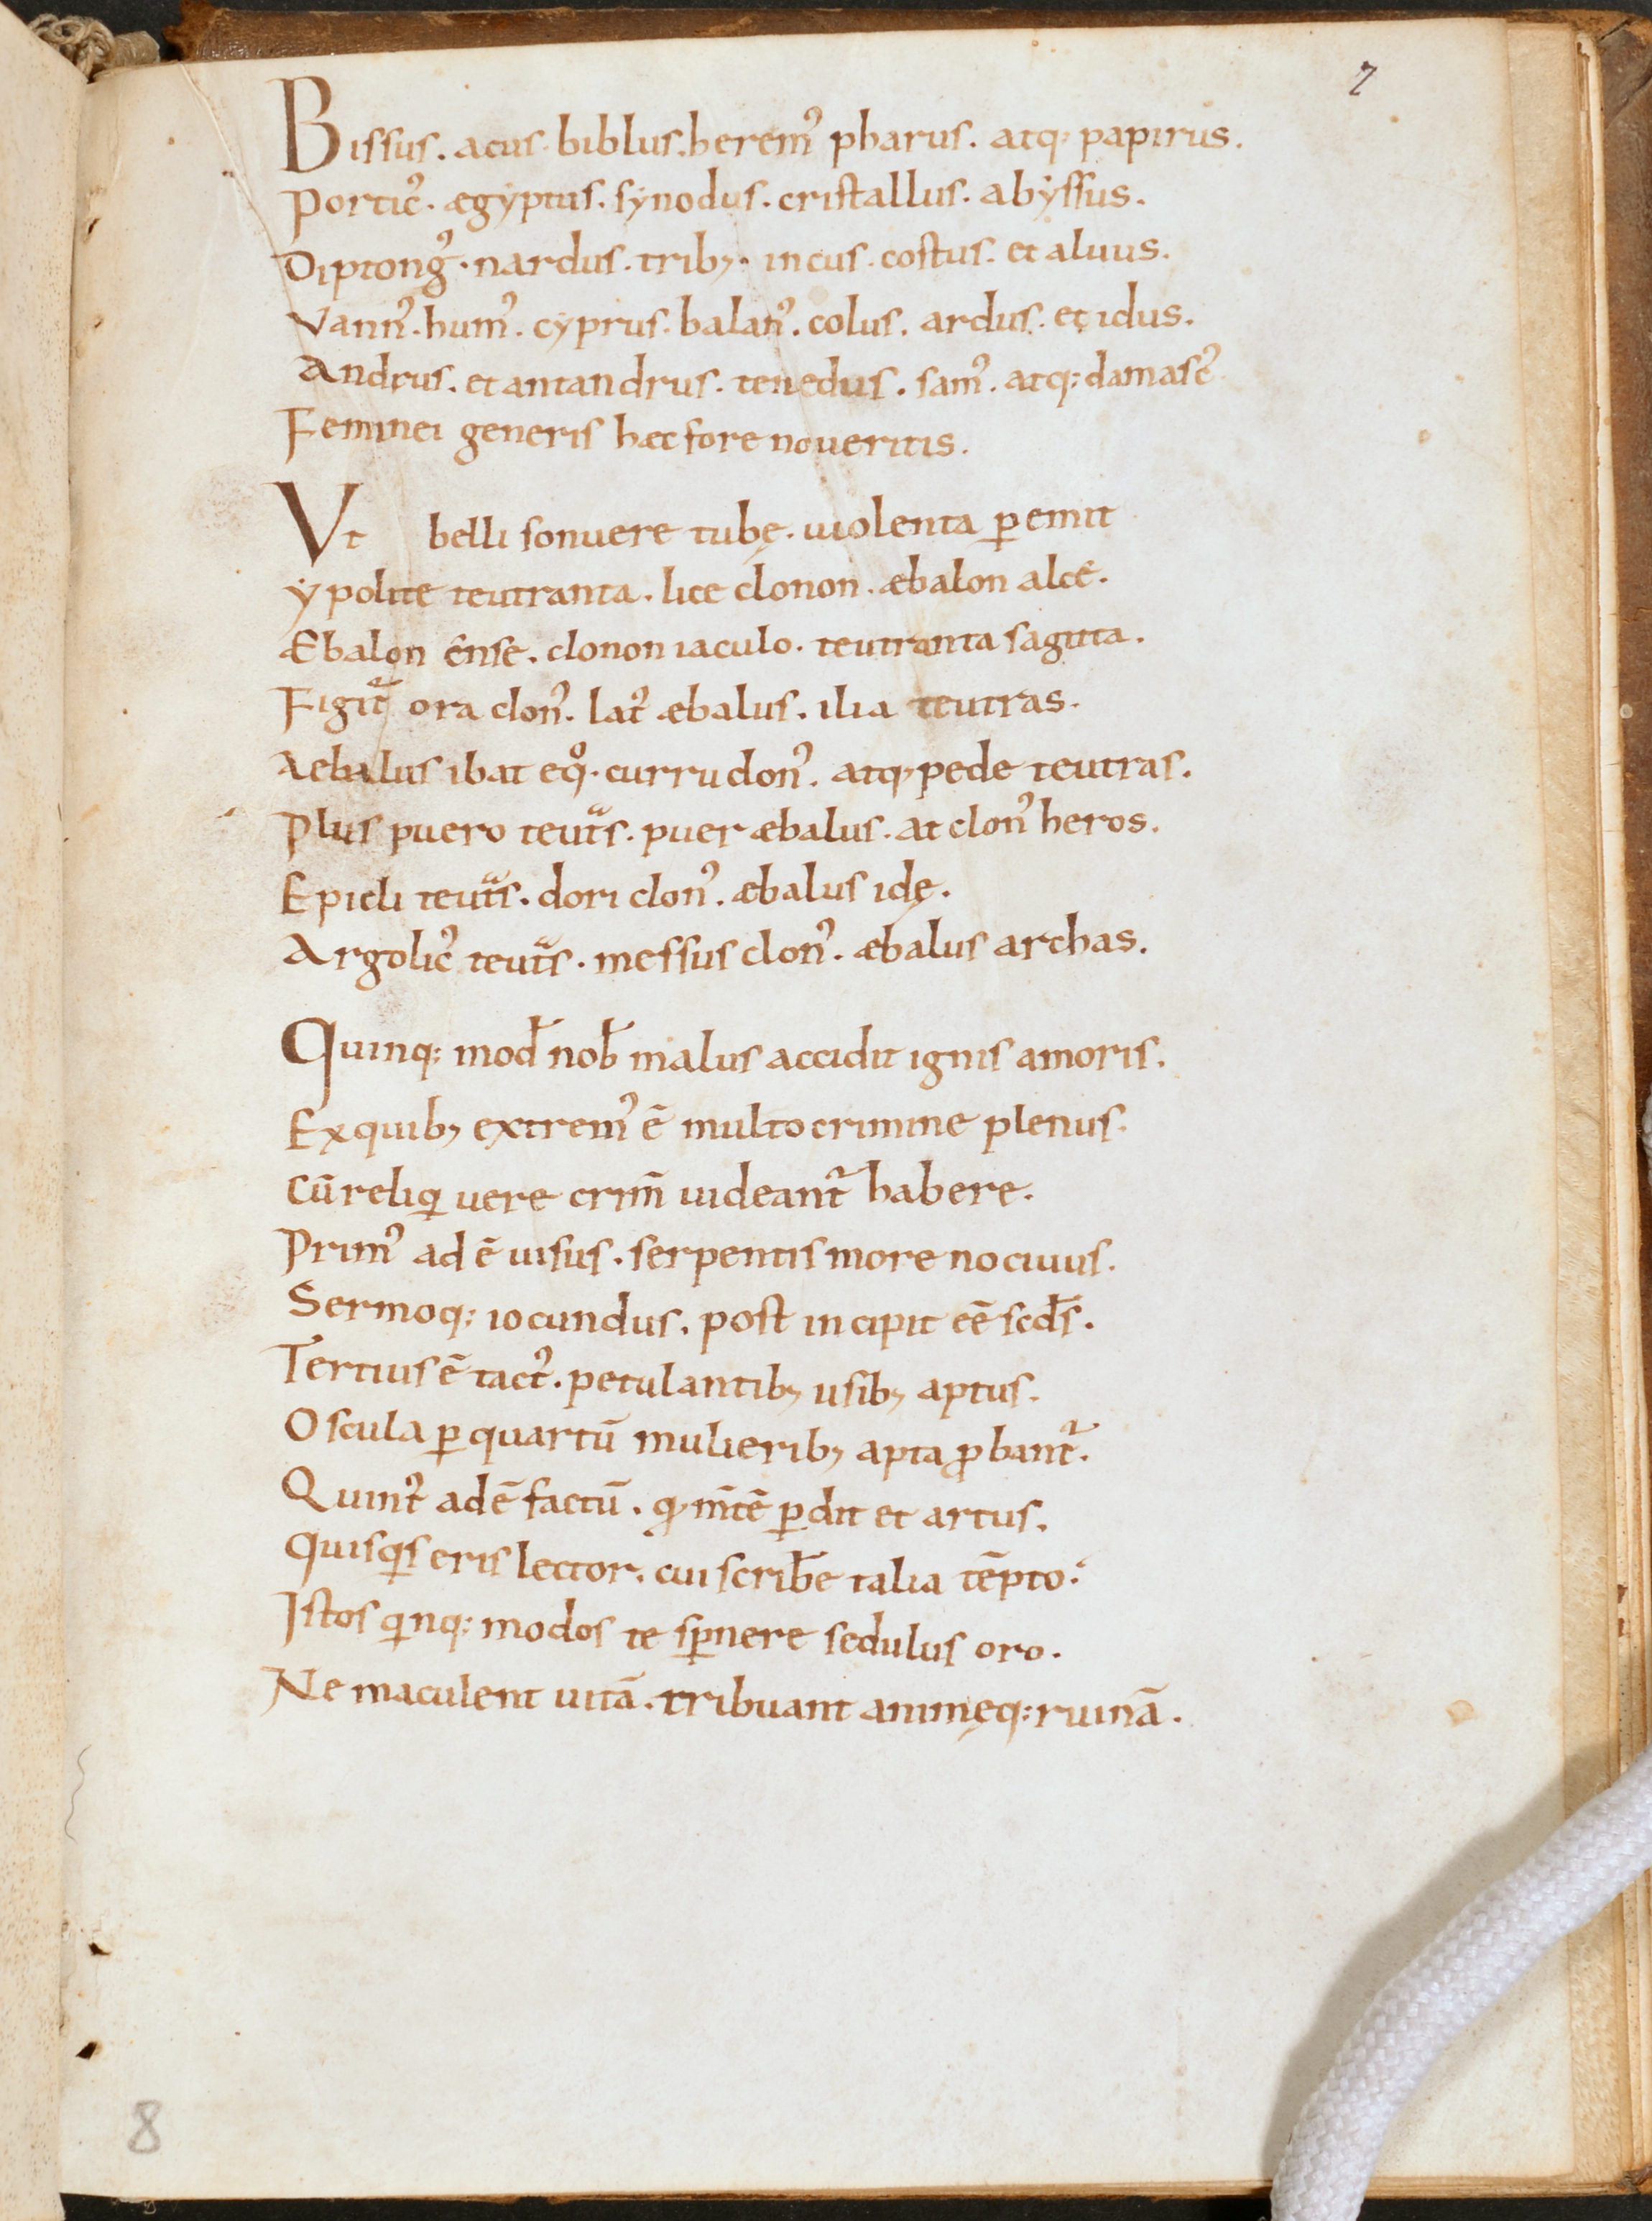 7
Bissus. acus. biblus. heremꝰ pharus. atq; papirus.
Porticꝰ. ægẏptus. sẏnodus. cristallus. abẏssus.
Diptongꝰ. nardus. trib; incus. costus. et aluus.
Vannꝰ. humꝰ. cẏprus. balanꝰ. colus. ardus. et idus.
Andrus. et antandrus. tenedus. samꝰ. atq; damascꝰ
Feminei generis hæc fore noueritis.
Vt belli sonuere tubę. uiolenta ꝑemit
ẏpolite teutranta. lice clonon. æbalon alce.
Æbalon ense. clonon iaculo. teutranta sagitta.
Figit᷑ ora clonꝰ. latꝰ æbalus. ilia teutras.
Aebalus ibat eqͦ. curru clonꝰ. atq; pede teutras.
Plus puero teutᷓs. puer æbalus. at clonꝰ heros.
Epicli teutᷓs. dori clonꝰ. æbalus idę.
Argolicꝰ teutᷓs. messus clonꝰ. æbalus archas.
Quinq; mod̄ nob̄ malus accidit ignis amoris.
Exquib; extremꝰ ē multo crimine plenus.
Cū reliqi uere crim̄ uideant᷑ habere.
Primꝰ ad ē uisus. serpentis more nociuus.
Sermoq; iocundus. post incipit eē scd̄s.
Tertius ē tactꝰ. petulantib; usib; aptus.
Oscula ꝑ quartū mulierib; apta ꝓbant᷑.
Quintꝰ adē factū. q; m̄tē ꝑdit et artus.
Quisqis eris lector. cui scrib̄e talia tēpto.
Istos qinq; modos te sꝑnere sedulus oro.
Ne maculent uitā. tribuant animęq; ruinā.
8